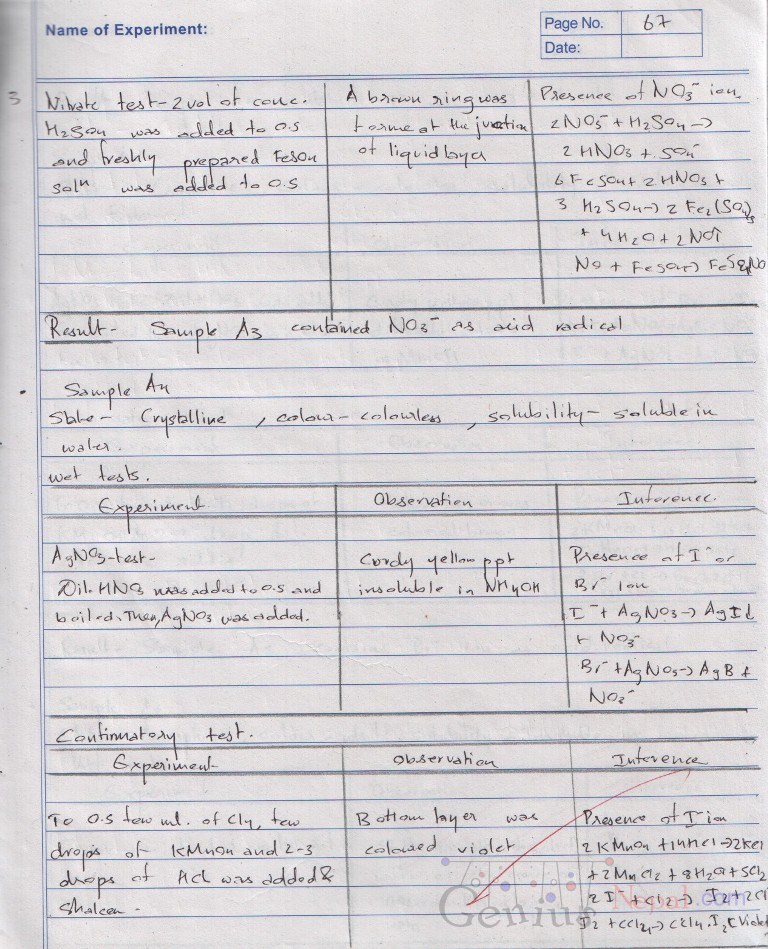 Name of Experiment:
Page No. 67
Date:
3
Nitrate test - 2 vol of conc.
H2SO4 was added to O.S
and freshly prepared FeSO4
solⁿ was added to O.S
A brown ring was
forme at the junction
of liquid layer
Presence of NO3⁻ ion
2NO3⁻ + H2SO4 →
2 HNO3 + SO4⁻
6 FeSO4 + 2 HNO3 +
3 H2SO4 → 2 Fe2(SO4)3
+ 4H2O + 2NO↑
NO + FeSO4 → FeSO4NO
Result - Sample A3 contained NO3⁻ as acid radical
Sample A4
State - Crystalline , colour - colourless , solubility - soluble in
water.
wet tests.
Experiment
Observation
Inference.
AgNO3-test-
Dil. HNO3 was added to O.S and
boiled. Then, AgNO3 was added.
Curdy yellow ppt
insoluble in NH4OH
Presence of I⁻ or
Br⁻ ion
I⁻ + AgNO3 → AgI↓
+ NO3⁻
Br⁻ + AgNO3 → AgB +
NO3⁻
Confirmatory test.
Experiment
Observation
Inference
To O.S few ml. of Cl4, few
drops of KMnO4 and 2-3
drops of HCl was added &
Shaken -
Bottom layer was
coloured violet
Presence of I⁻ ion
2KMnO4 + 14HCl → 2KCl
+ 2MnCl2 + 8H2O + 5Cl2
2I⁻ + Cl2 → I2 + 2Cl
I2 + CCl4 → CCl4.I2 (Violet
Genius Nepal.com